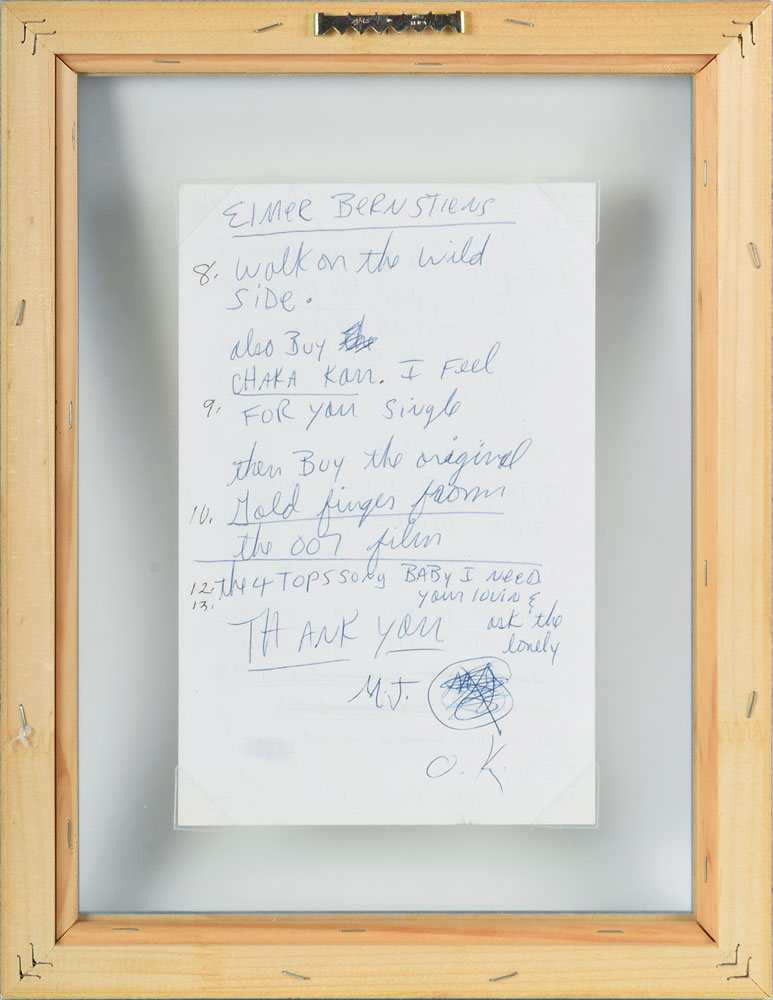 ElMER BERNSTIENS
8. Walk on the Wild
SiDe.
also Buy
CHAKA Kan. I Feel
9. FOR you Single
then Buy the original
10. Gold finger from
the 007 film
12. the 4 TOPS Song BABy I NeeD
13. your lovin &
ask the
lonely
THANK YOU
M.J.
O.K.